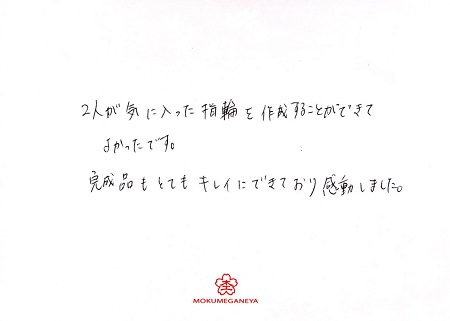 2人が気に入った指輪を作成することができて
よかったです。
完成品もとてもキレイにできており感動しました。
MOKUMEGANEYA